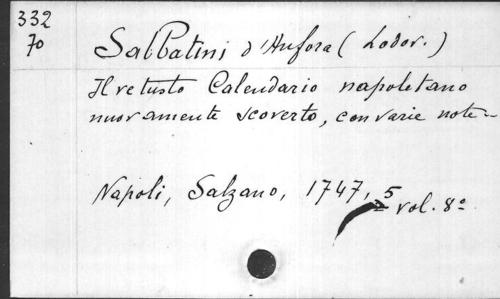 332
70
Sabbatini d'Anfora (Lodov.)
Il vetusto Calendario napoletano
nuovamente scoverto, con varie note -
Napoli, Salzano, 1747, 5 vol. 8º